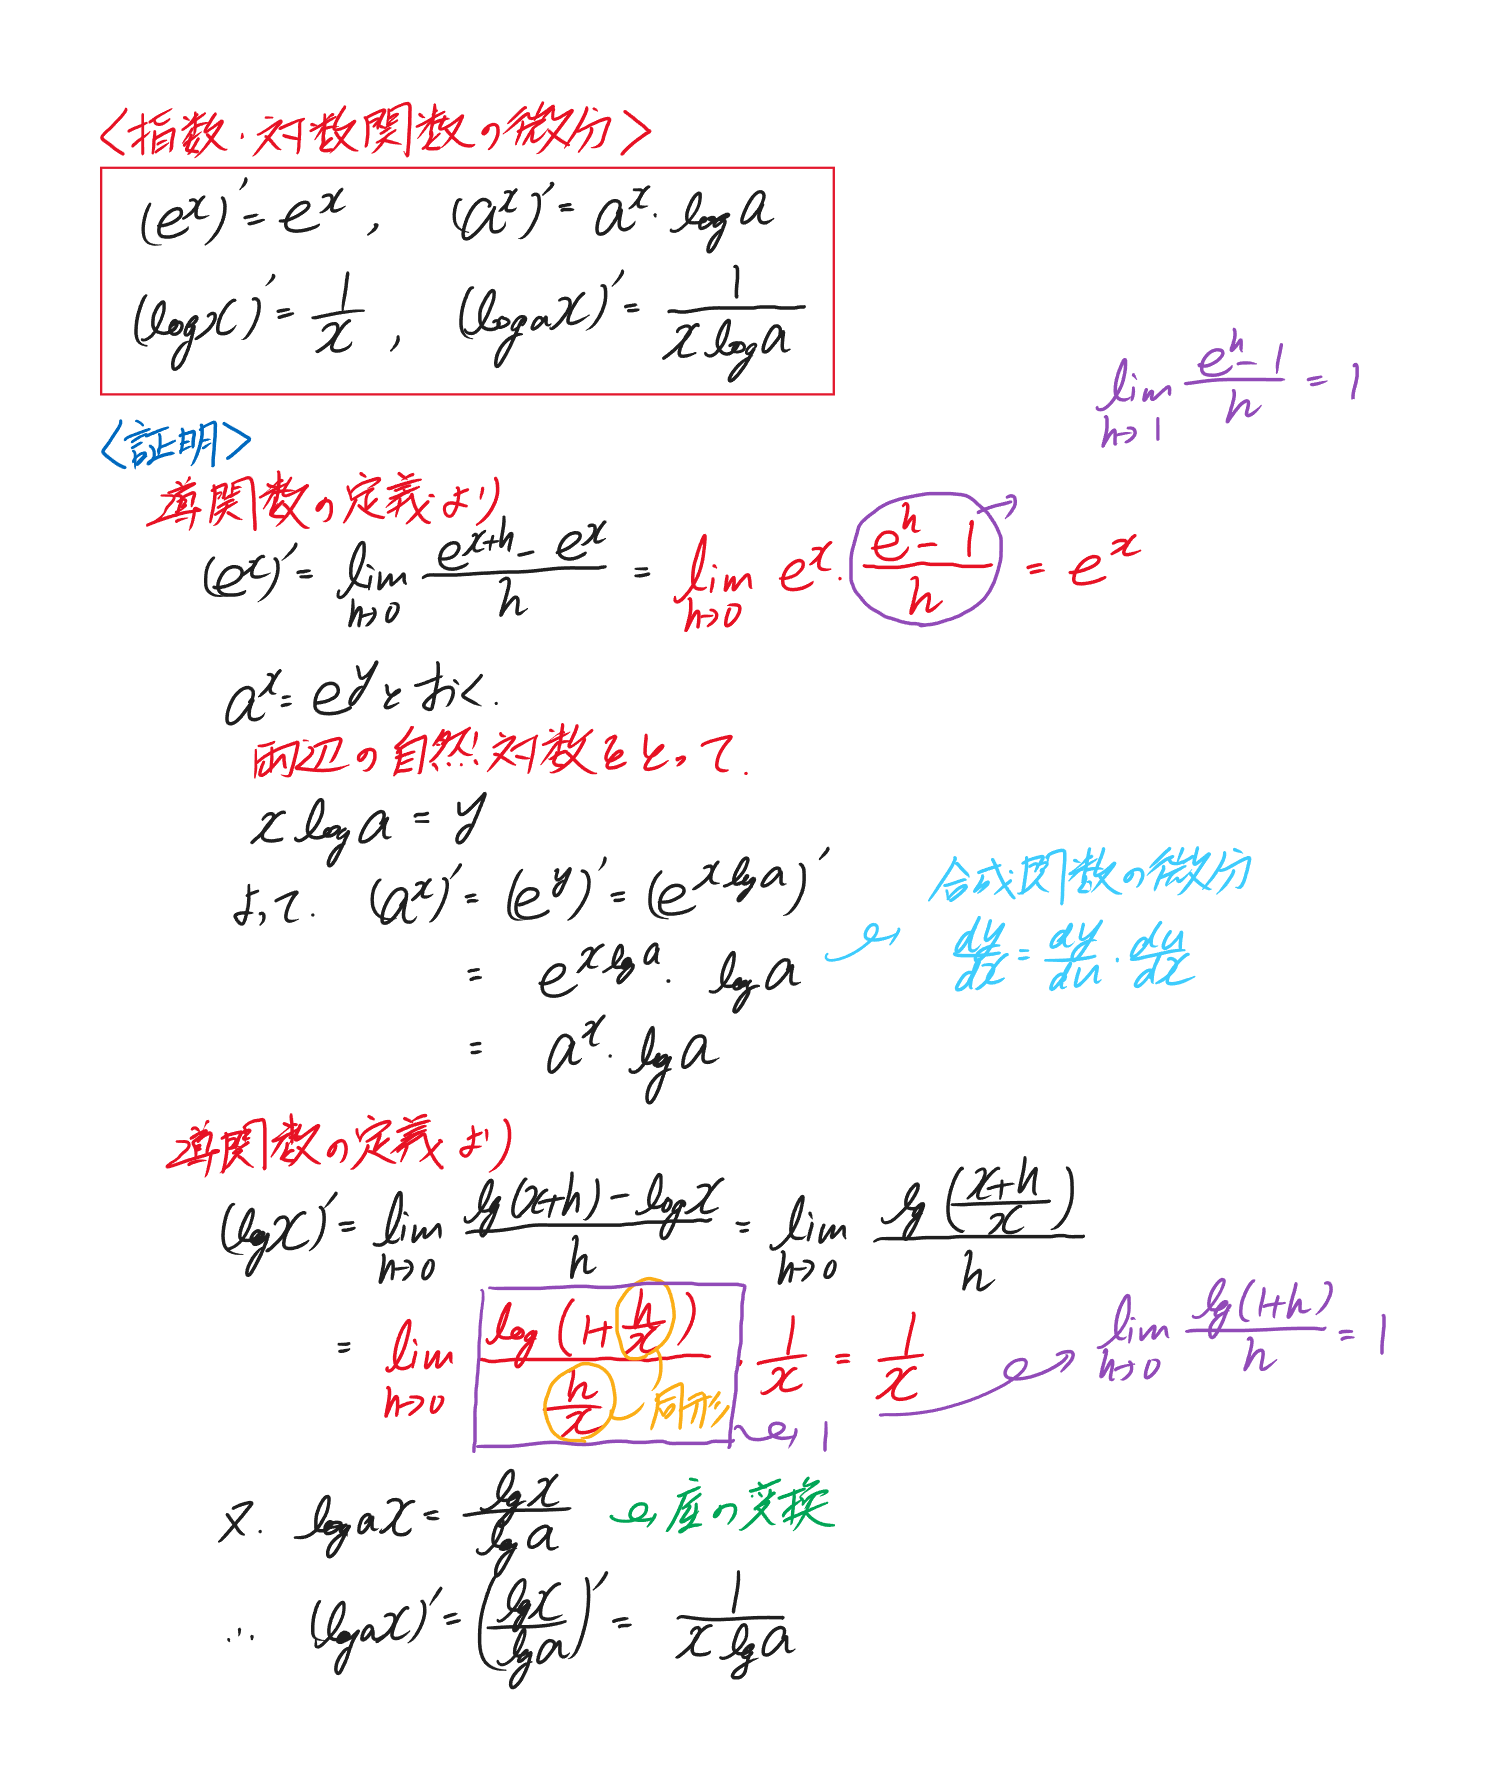 <指数・対数関数の微分>
(e^x)' = e^x , (a^x)' = a^x・log a
(log x)' = 1/x , (log_a x)' = 1/(x log a)
lim_{h→1} (e^h - 1)/h = 1
<証明>
導関数の定義より
(e^x)' = lim_{h→0} (e^{x+h} - e^x)/h = lim_{h→0} e^x・(e^h - 1)/h = e^x
a^x = e^y とおく.
両辺の自然対数をとって.
x log a = y
よって. (a^x)' = (e^y)' = (e^{x log a})'
合成関数の微分
= e^{x log a}・log a
dy/dx = dy/du・du/dx
= a^x・log a
導関数の定義より
(log x)' = lim_{h→0} (log(x+h) - log x)/h = lim_{h→0} log((x+h)/x)/h
= lim_{h→0} log(1+h/x)/(h/x)・1/x = 1/x
lim_{h→0} log(1+h)/h = 1
同形
1
又. log_a x = log x/log a
底の変換
∴ (log_a x)' = (log x/log a)' = 1/(x log a)